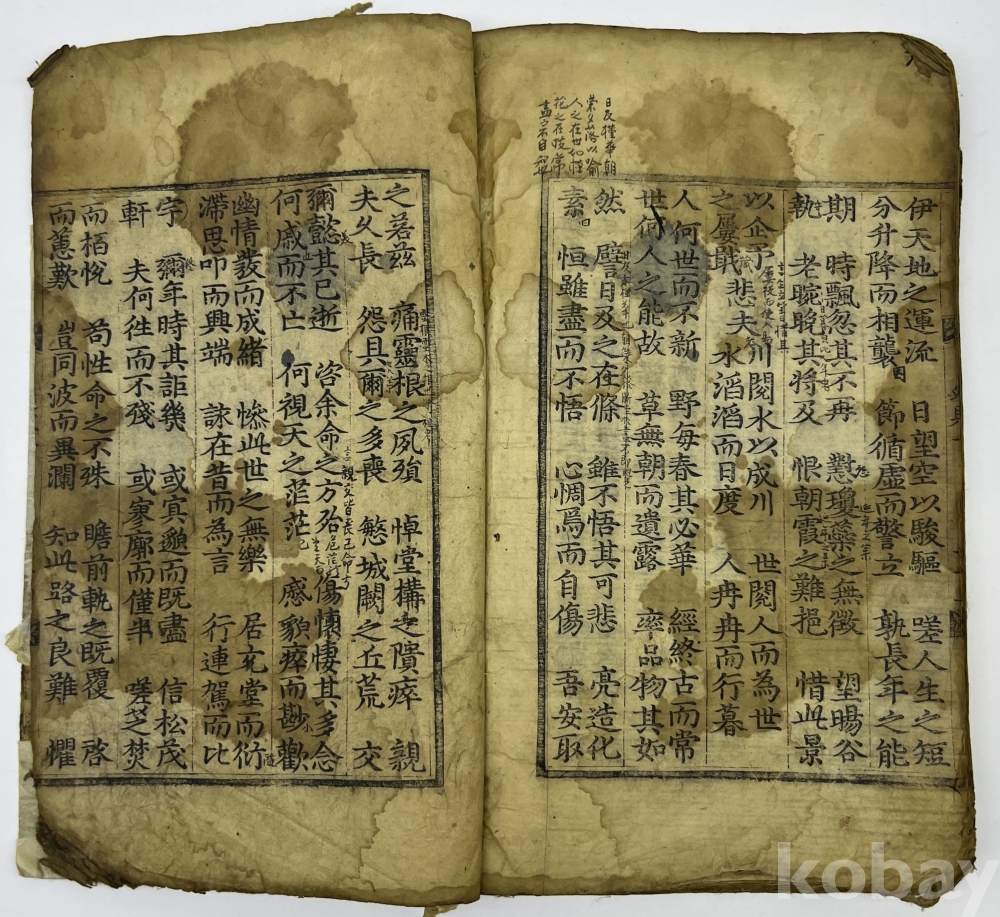 日及槿華朝
榮夕落以喩
人之在世如槿
花之在枝常
伊天地之運流 日望空以駿驅 嗟人生之短
分升降而相襲 節循虛而警立 孰長年之能
期 時飄忽其不再 懟瓊蘂之無徵 望暘谷
執 老晼晚其將及 恨朝霞之難挹 惜此景
以企予 悲夫 川閱水以成川 世閱人而為世
之屢戢 水滔滔而日度 人冉冉而行暮
人何世而不新 野每春其必華 經終古而常
世何人之能故 草無朝而遺露 率品物其如
然 譬日及之在條 雖不悟其可悲 亮造化
素 恒雖盡而不悟 心惆焉而自傷 吾安取
之若兹 痛靈根之夙殞 悼堂構之隤瘁 親
夫久長 怨具爾之多喪 慜城闕之丘荒 交
彌懿其已逝 咨余命之方殆 傷懷悽其多念
何戚而不亡 何視天之茫茫 慼貌瘁而尠歡
幽情發而成緒 慘此世之無樂 居充堂而衍
滯思叩而興端 詠在昔而為言 行連駕而比
宇 彌年時其詎幾 或冥邈而既盡 信松茂
軒 夫何往而不殘 或寥廓而僅半 嗟芝焚
而栢悅 苟性命之不殊 瞻前軌之既覆 啓
而蕙歎 豈同波而異瀾 知此路之良難 懼
kobay